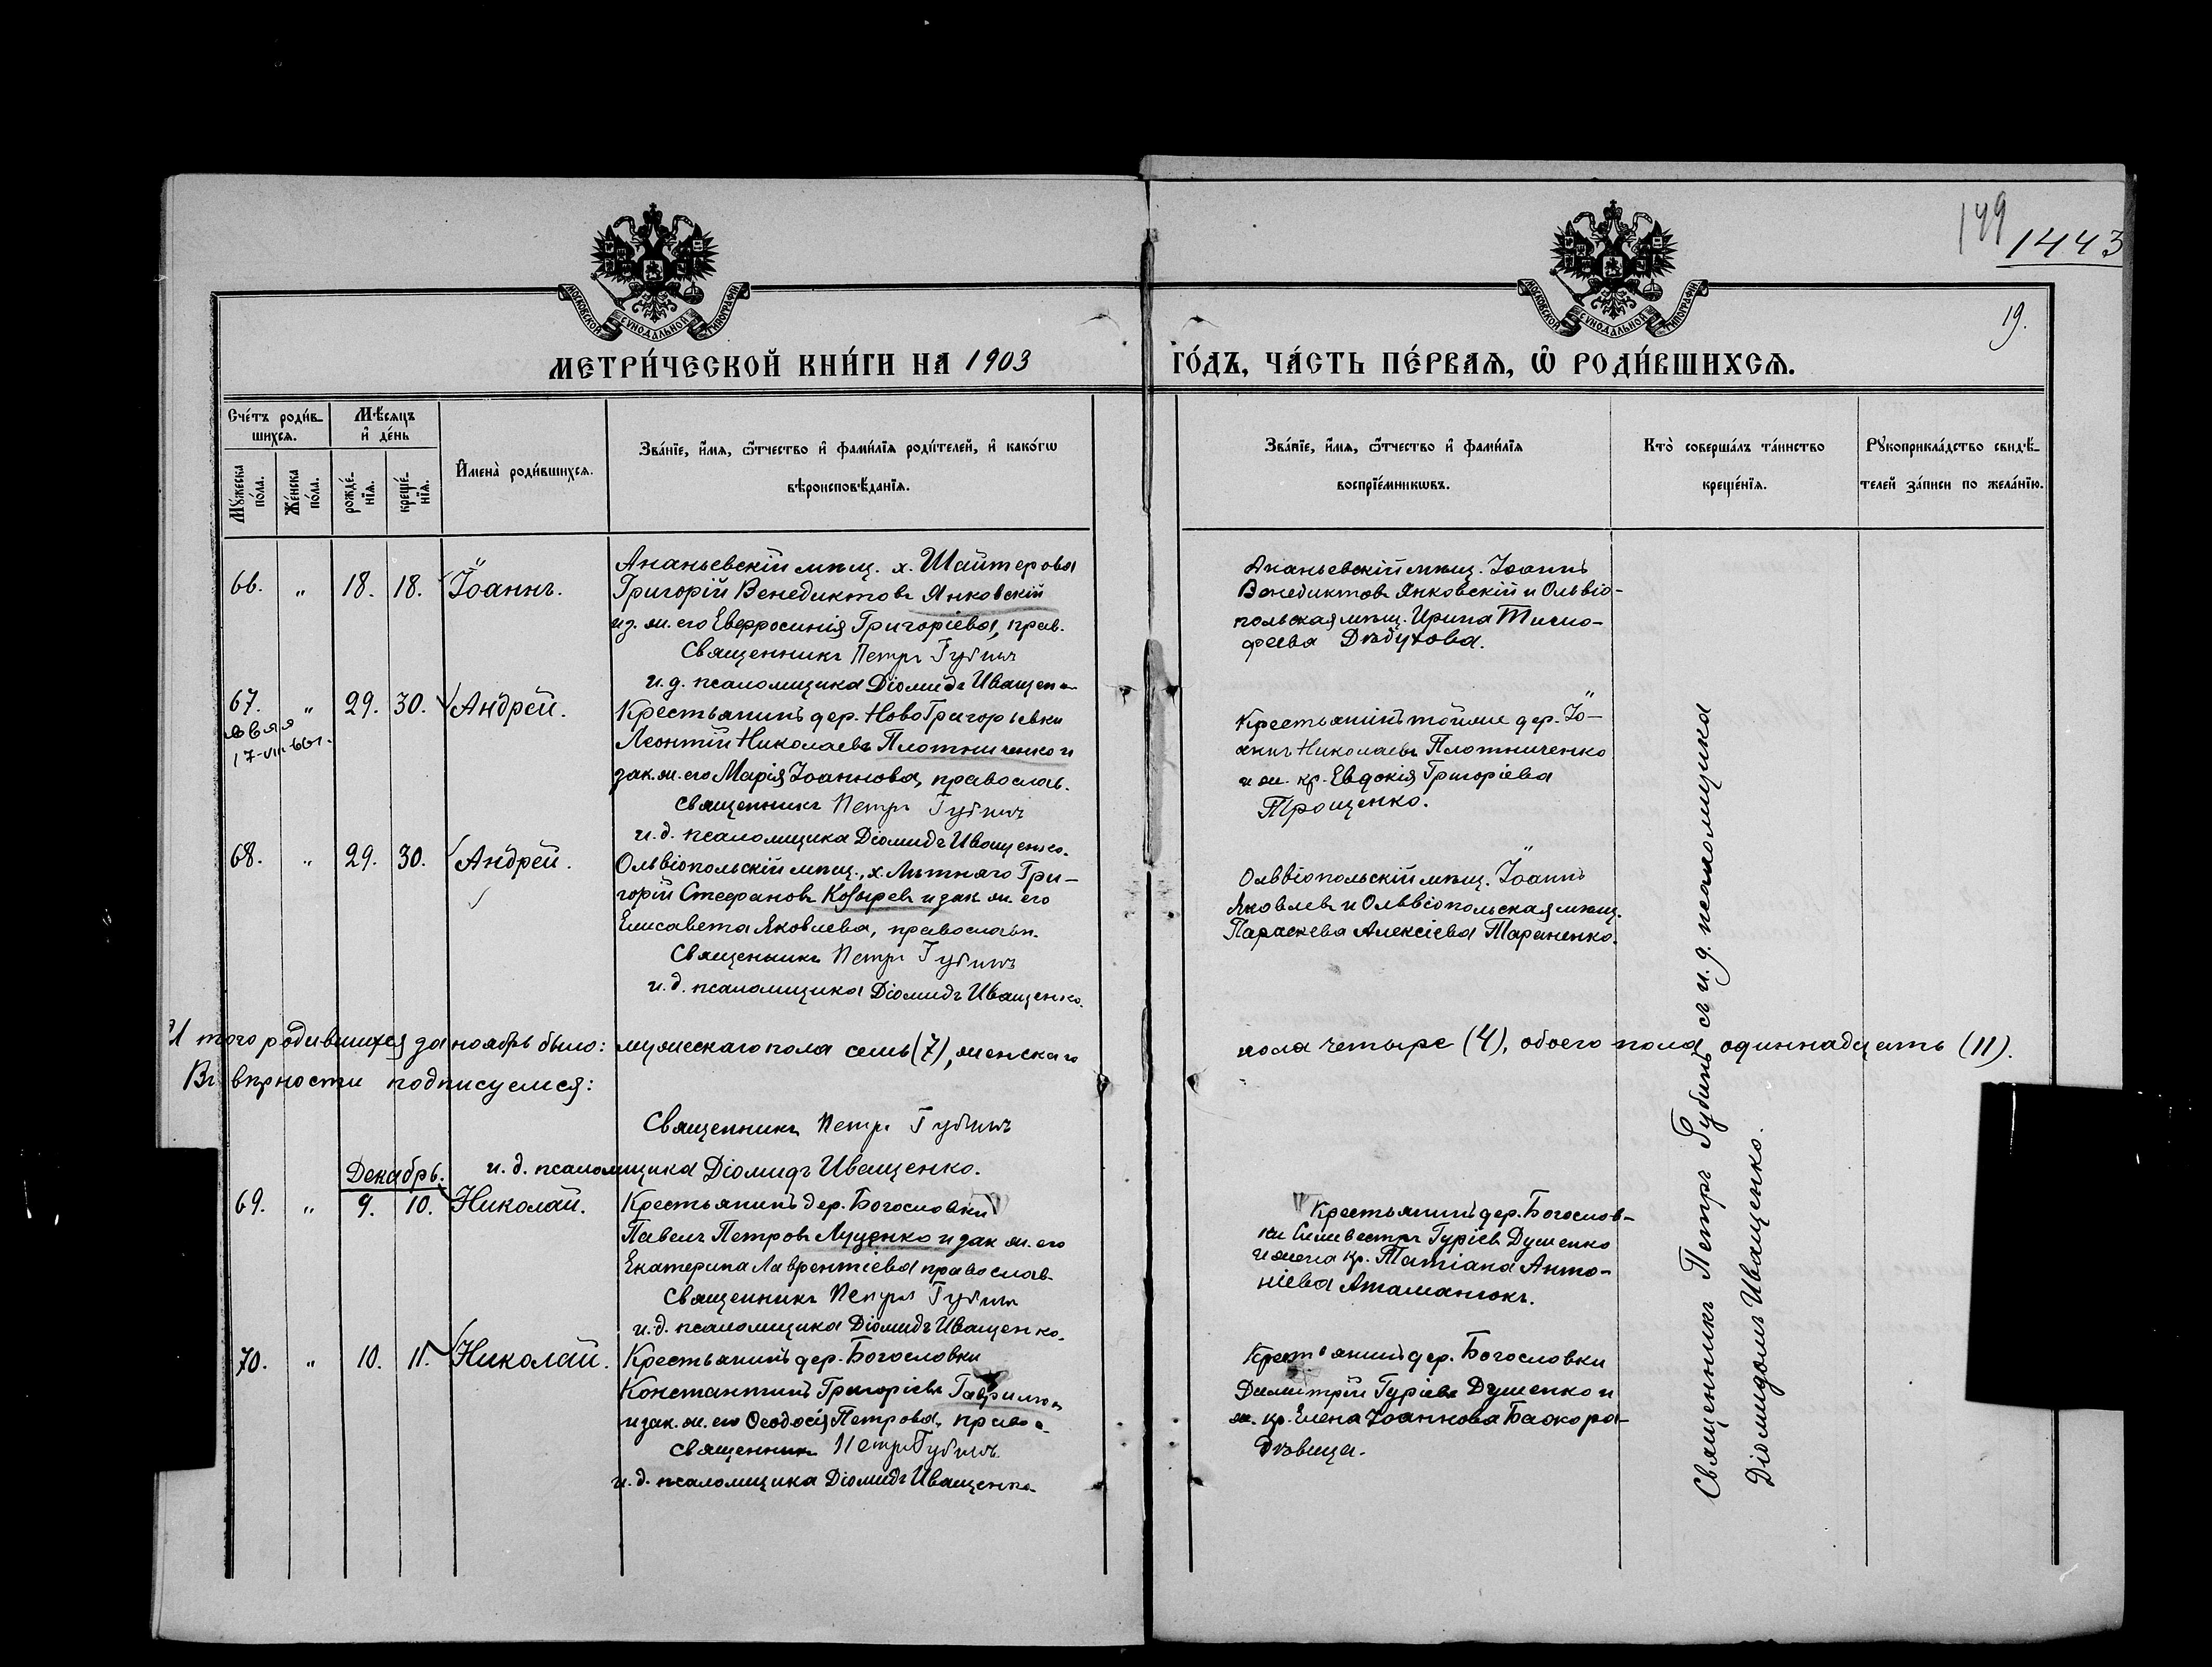 149
1443
19.
МОСКОВСКОЙ СѴНОДАЛЬНОЙ ТИПОГРАФІИ
МОСКОВСКОЙ СѴНОДАЛЬНОЙ ТИПОГРАФІИ
МЕТРИ́ЧЕСКОЙ КНИ́ГИ НА 1903
ГО́ДЪ, ЧА́СТЬ ПЕ́РВАѦ, Ѡ҆ РОДИ́ВШИХСѦ.
Сче́тъ роди́в-
шихсѧ.
Мѣ́сѧцъ
и҆ де́нь
Мꙋ́жеска
по́ла.
Же́нска
по́ла.
рожде́-
нїѧ.
креще́-
нїѧ.
И҆мена̀ роди́вшихсѧ.
Зва́нїе, и҆́мѧ, ѻ҆́тчество и҆ фами́лїѧ роди́телей, и҆ како́гѡ
вѣроисповѣ́данїѧ.
Зва́нїе, и҆́мѧ, ѻ҆́тчество и҆ фами́лїѧ
воспрїе́мникѡвъ.
Кто̀ соверша́лъ та́инство
креще́нїѧ.
Рꙋкоприкла́дство свидѣ́-
телей за́писи по жела́нїю.
66. " 18. 18. Іоаннъ.
Ананьевскій мѣщ. х. Шайтерова
Григорій Венедиктовъ Янковскій
и з. ж. его Евфросинія Григоріева, прав.
Священникъ Петръ Губинъ
и. д. псаломщика Діомидъ Иващен
Ананьевскій мѣщ. Іоаннъ
Венедиктовъ Янковскій и Ольвіо-
польская мѣщ. Ирина Тимо-
феева
67. " 29. 30. Андрей.
17-VIII-66г.
Крестьянинъ дер. НовоГригорьевки
Леонтій Николаевъ Плотниченко и
зак. ж. его Марія Іоаннова, православ.
Священникъ Петръ Губинъ
и. д. псаломщика Діомидъ Иващенко.
Крестьянинъ той же дер. Іо-
аннъ Николаевъ Плотниченко
и ж. кр. Евдокія Григоріева
Трощенко.
68. " 29. 30. Андрей.
Ольвіопольскій мѣщ., х. Лѣтняго Гри-
горій Стефановъ Козыревъ и зак. ж. его
Елисавета Яковлева, православн.
Священникъ Петръ Губинъ
и. д. псаломщика Діомидъ Иващенко.
Ольвіопольскій мѣщ. Іоаннъ
Яковлевъ и Ольвіопольская мѣщ.
Параскева Алексіева Тараненко.
Итого родившихся за ноябрь было: мужескаго пола семь (7), женскаго
пола четыре (4), обоего пола одиннадцать (11).
Въ вѣрности подписуемся:
Священникъ Петръ Губинъ
и. д. псаломщика Діомидъ Иващенко.
Декабрь.
69. " 9. 10. Николай.
Крестьянинъ дер. Богословки
Павелъ Петровъ Луценко и зак. ж. его
Екатерина Лаврентіева православ.
Священникъ Петръ Губинъ
и. д. псаломщика Діомидъ Иващенко.
Крестьянинъ дер. Богослов-
ки Сильвестръ Гуріевъ Душенко
и жена кр. Татіана Анто-
ніева Атаманюкъ.
70. " 10. 11. Николай.
Крестьянинъ дер. Богословки
Константинъ Григоріевъ Гаврилюк
и зак. ж. его Ѳеодосія Петрова, право
Священникъ Петръ Губинъ
и. д. псаломщика Діомидъ Иващенко
Крестьянинъ дер. Богословки
Димитрій Гуріевъ Душенко и
ж. кр. Елена Іоаннова
дѣвица.
Священникъ Петръ Губинъ съ и. д. псаломщика
Діомидомъ Иващенко.